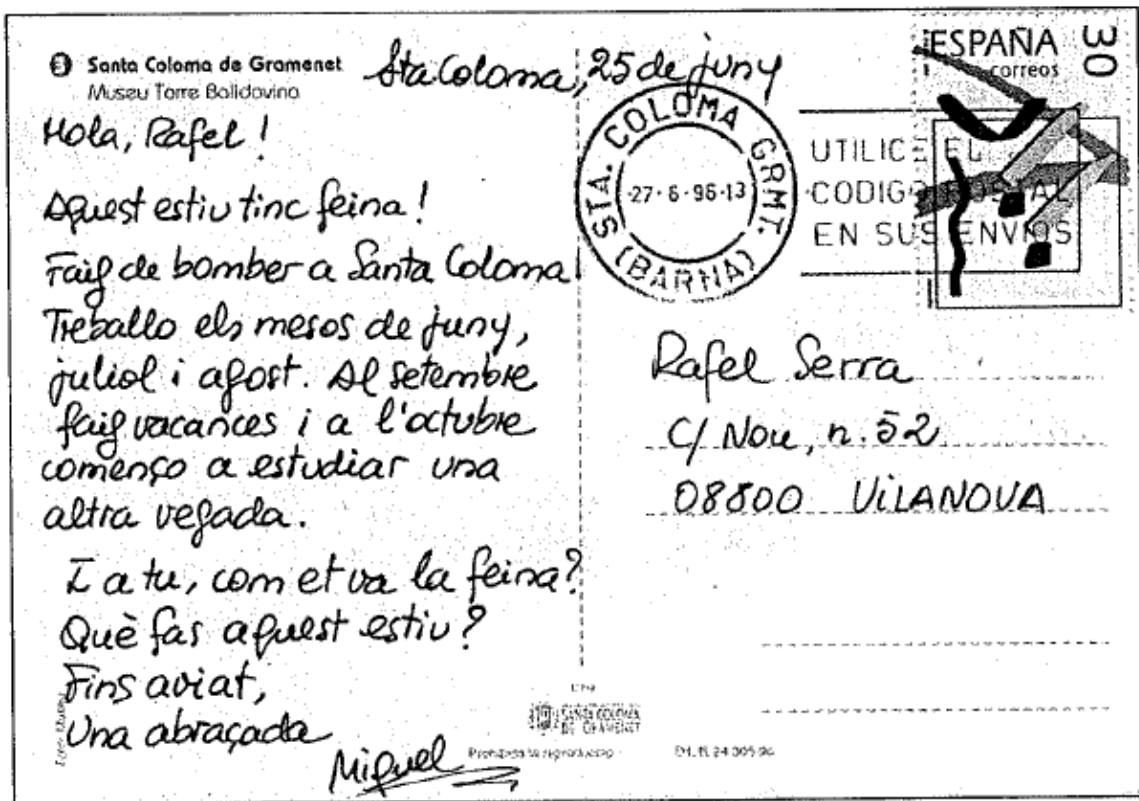 Santa Coloma de Gramenet
Museu Torre Balldovina
Sta Coloma, 25 de juny
Hola, Rafel!
Aquest estiu tinc feina!
Faig de bomber a Santa Coloma
Treballo els mesos de juny,
juliol i agost. Al setembre
faig vacances i a l'octubre
començo a estudiar una
altra vegada.
I a tu, com et va la feina?
Què fas aquest estiu?
Fins aviat,
Una abraçada
Miquel
STA. COLOMA GRMT.
27-6-96-13
(BARNA)
UTILICE EL
CODIGO POSTAL
EN SUS ENVIOS
ESPAÑA
correos
30
Rafel Serra
C/ Nou, n. 52
08800 VILANOVA
SANTA COLOMA
DE GRAMENET